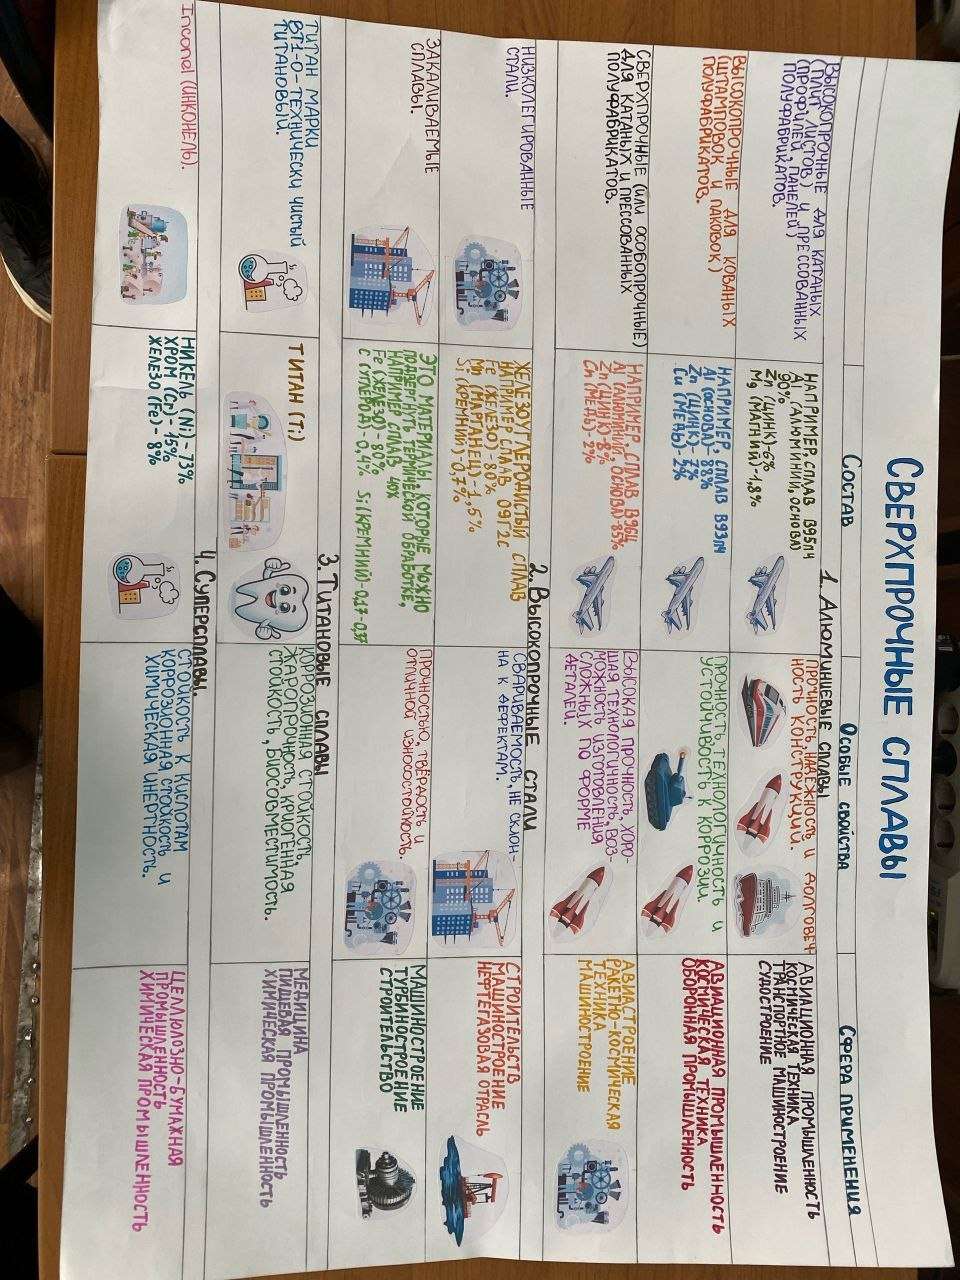 СВЕРХПРОЧНЫЕ СПЛАВЫ
СОСТАВ
ОСОБЫЕ СВОЙСТВА
СФЕРА ПРИМЕНЕНИЯ
1. АЛЮМИНИЕВЫЕ СПЛАВЫ
ВЫСОКОПРОЧНЫЕ ДЛЯ КАТАНЫХ
(ПЛИТ, ЛИСТОВ) И ПРЕССОВАННЫХ
(ПРОФИЛЕЙ, ПАНЕЛЕЙ)
ПОЛУФАБРИКАТОВ.
НАПРИМЕР, СПЛАВ В95ПЧ
Al (АЛЮМИНИЙ, ОСНОВА)
90%
Zn (ЦИНК)-6%
Mg (МАГНИЙ)-1,8%
ПРОЧНОСТЬ, НАДЕЖНОСТЬ И ДОЛГОВЕЧ-
НОСТЬ КОНСТРУКЦИЙ.
АВИАЦИОННАЯ ПРОМЫШЛЕННОСТЬ
КОСМИЧЕСКАЯ ТЕХНИКА
ТРАНСПОРТНОЕ МАШИНОСТРОЕНИЕ
СУДОСТРОЕНИЕ
ВЫСОКОПРОЧНЫЕ ДЛЯ КОВАНЫХ
(ШТАМПОВОК И ПАКОВОК)
ПОЛУФАБРИКАТОВ.
НАПРИМЕР, СПЛАВ В93ПЧ
Al (ОСНОВА)- 88%
Zn (ЦИНК)- 7%
Cu (МЕДЬ)- 2%
ПРОЧНОСТЬ, ТЕХНОЛОГИЧНОСТЬ И
УСТОЙЧИВОСТЬ К КОРРОЗИИ.
АВИАЦИОННАЯ ПРОМЫШЛЕННОСТЬ
КОСМИЧЕСКАЯ ТЕХНИКА
ОБОРОННАЯ ПРОМЫШЛЕННОСТЬ
СВЕРХПРОЧНЫЕ (ИЛИ ОСОБОПРОЧНЫЕ)
ДЛЯ КАТАНЫХ И ПРЕССОВАННЫХ
ПОЛУФАБРИКАТОВ.
НАПРИМЕР, СПЛАВ В96Ц
Al (АЛЮМИНИЙ, ОСНОВА)-85%
Zn (ЦИНК)- 8%
Cu (МЕДЬ)- 2%
ВЫСОКАЯ ПРОЧНОСТЬ, ХОРО-
ШАЯ ТЕХНОЛОГИЧНОСТЬ, ВОЗ-
МОЖНОСТЬ ИЗГОТОВЛЕНИЯ
СЛОЖНЫХ ПО ФОРМЕ
ДЕТАЛЕЙ.
АВИАСТРОЕНИЕ
РАКЕТНО-КОСМИЧЕСКАЯ
ТЕХНИКА
МАШИНОСТРОЕНИЕ
2. ВЫСОКОПРОЧНЫЕ СТАЛИ
НИЗКОЛЕГИРОВАННЫЕ
СТАЛИ.
ЖЕЛЕЗОУГЛЕРОДИСТЫЙ СПЛАВ
НАПРИМЕР СПЛАВ 09Г2С
Fe (ЖЕЛЕЗО)-80%
Mn (МАРГАНЕЦ)-1,5%
Si (КРЕМНИЙ)-0,7%
СВАРИВАЕМОСТЬ, НЕ СКЛОН-
НА К ДЕФЕКТАМ.
СТРОИТЕЛЬСТВ
МАШИНОСТРОЕНИЕ
НЕФТЕГАЗОВАЯ ОТРАСЛЬ
ЗАКАЛИВАЕМЫЕ
СПЛАВЫ.
ЭТО МАТЕРИАЛЫ, КОТОРЫЕ МОЖНО
ПОДВЕРГНУТЬ ТЕРМИЧЕСКОЙ ОБРАБОТКЕ,
НАПРИМЕР СПЛАВ 40Х
Fe (ЖЕЛЕЗО)- 80%
C (УГЛЕРОД)- 0,4% Si (КРЕМНИЙ)-0,17-0,37
ПРОЧНОСТЬЮ, ТВЁРДОСТЬ И
ОТЛИЧНОЙ ИЗНОСОСТОЙКОСТЬ.
МАШИНОСТРОЕНИЕ
ТУРБИНОСТРОЕНИЕ
СТРОИТЕЛЬСТВО
3. ТИТАНОВЫЕ СПЛАВЫ
ТИТАН МАРКИ
ВТ1-0-ТЕХНИЧЕСКИ ЧИСТЫЙ
ТИТАНОВЫЙ.
ТИТАН (Ti)
КОРРОЗИОННАЯ СТОЙКОСТЬ,
ЖАРОПРОЧНОСТЬ, КРИОГЕННАЯ
СТОЙКОСТЬ, БИОСОВМЕСТИМОСТЬ.
МЕДИЦИНА
ПИЩЕВАЯ ПРОМЫШЛЕННОСТЬ
ХИМИЧЕСКАЯ ПРОМЫШЛЕННОСТЬ
4. СУПЕРСПЛАВЫ.
Inconel (ИНКОНЕЛЬ).
НИКЕЛЬ (Ni) - 73%
ХРОМ (Cr)- 15%
ЖЕЛЕЗО (Fe)- 8%
СТОЙКОСТЬ К КИСЛОТАМ
КОРРОЗИОННАЯ СТОЙКОСТЬ И
ХИМИЧЕСКАЯ ИНЕРТНОСТЬ.
ЦЕЛЛЮЛОЗНО-БУМАЖНАЯ
ПРОМЫШЛЕННОСТЬ
ХИМИЧЕСКАЯ ПРОМЫШЛЕННОСТЬ